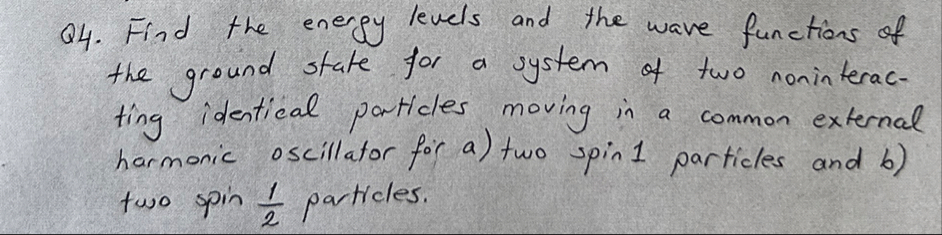 Q4. Find the energy levels and the wave functions of
the ground state for a system of two noninterac-
ting identical particles moving in a common external
harmonic oscillator for a) two spin 1 particles and b)
two spin 1/2 particles.